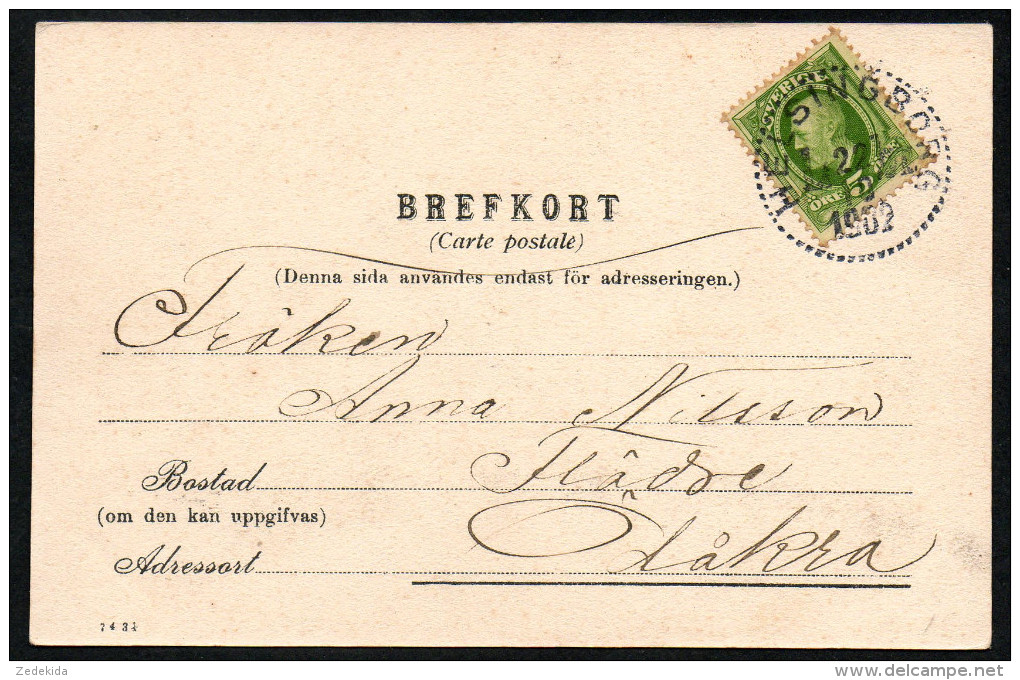 SVERIGE
5
ÖRE
HELSINGBORG
20
1902
BREFKORT
(Carte postale)
(Denna sida användes endast för adresseringen.)
Fröken
Anna Nilsson
Bostad Flädre
(om den kan uppgifvas)
Adressort Ålåkra
7431
Zedekida
www.delcampe.net